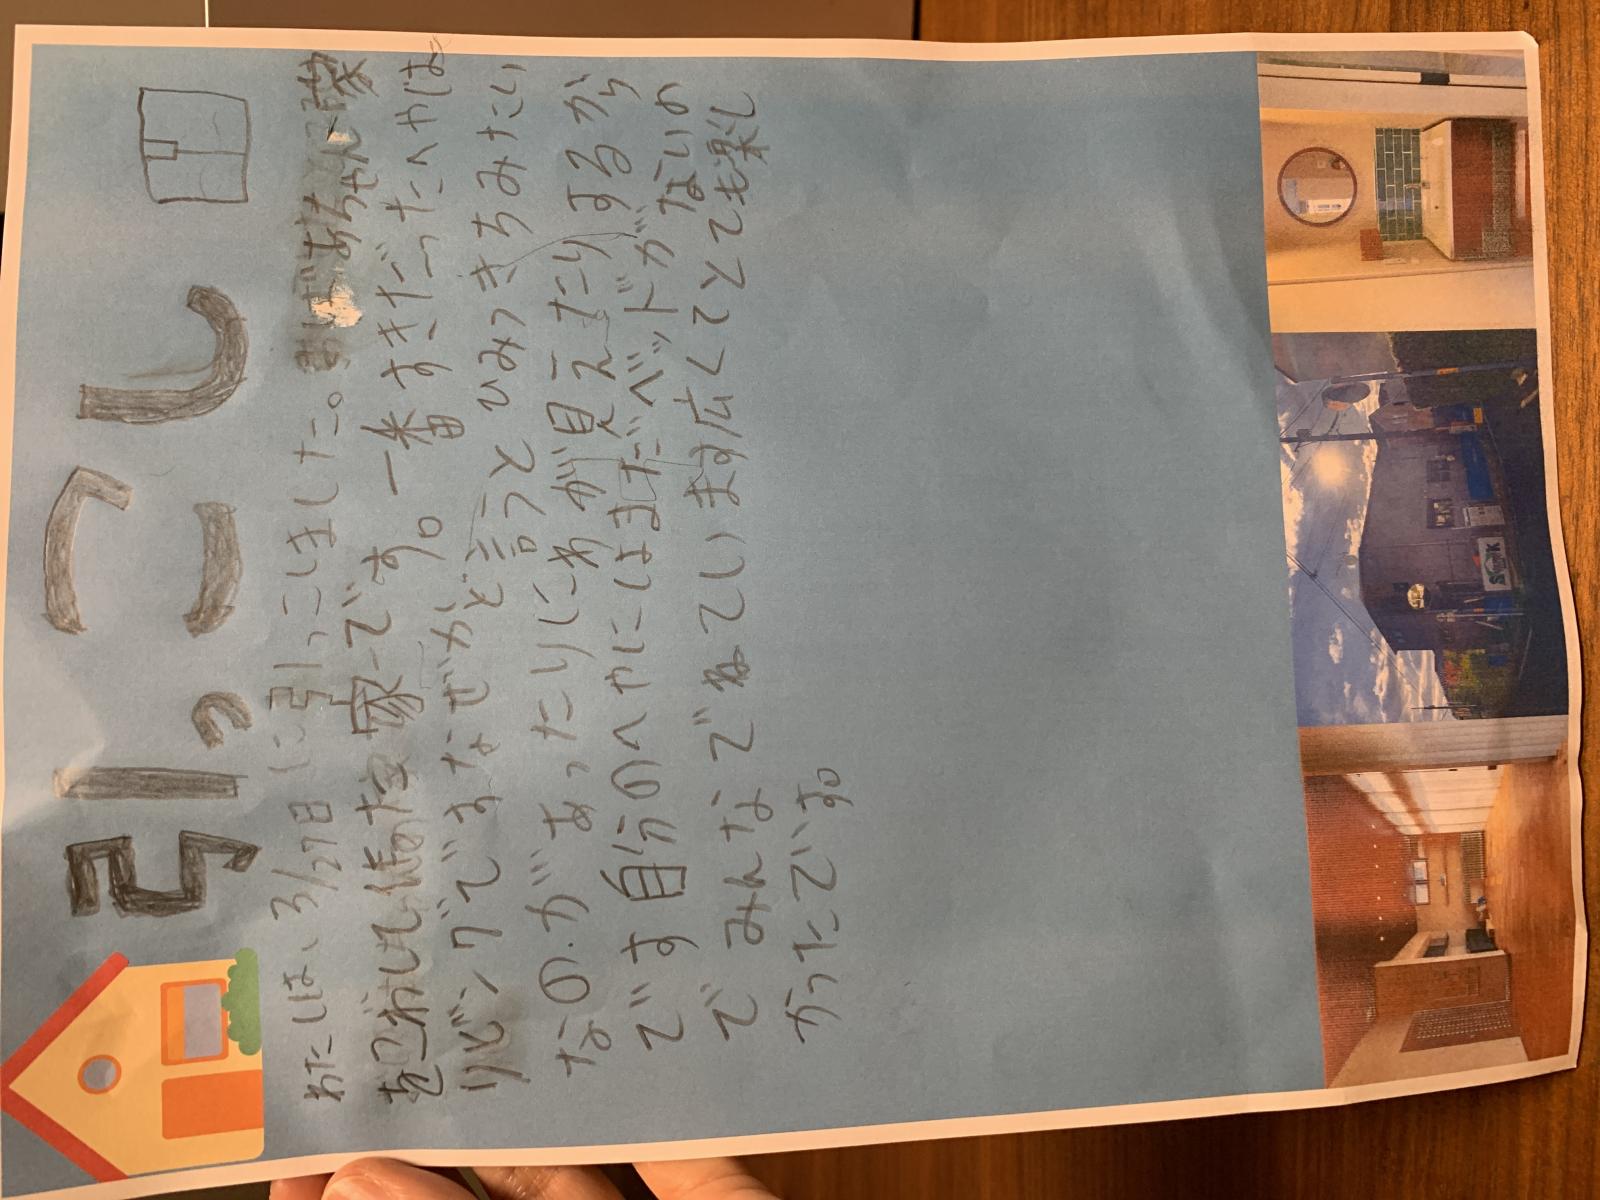 引っこし
わたしは、3/27日に引っこしました。ばあちゃん家
をこわして家です。一番すきだったへやは
リビングですなぜかと言うとひみつきちみたい
なのがあったりにわが見えたりするから
です自分のへやにはまだベッドがないの
でみんなでねています広くてとても楽し
かったです。